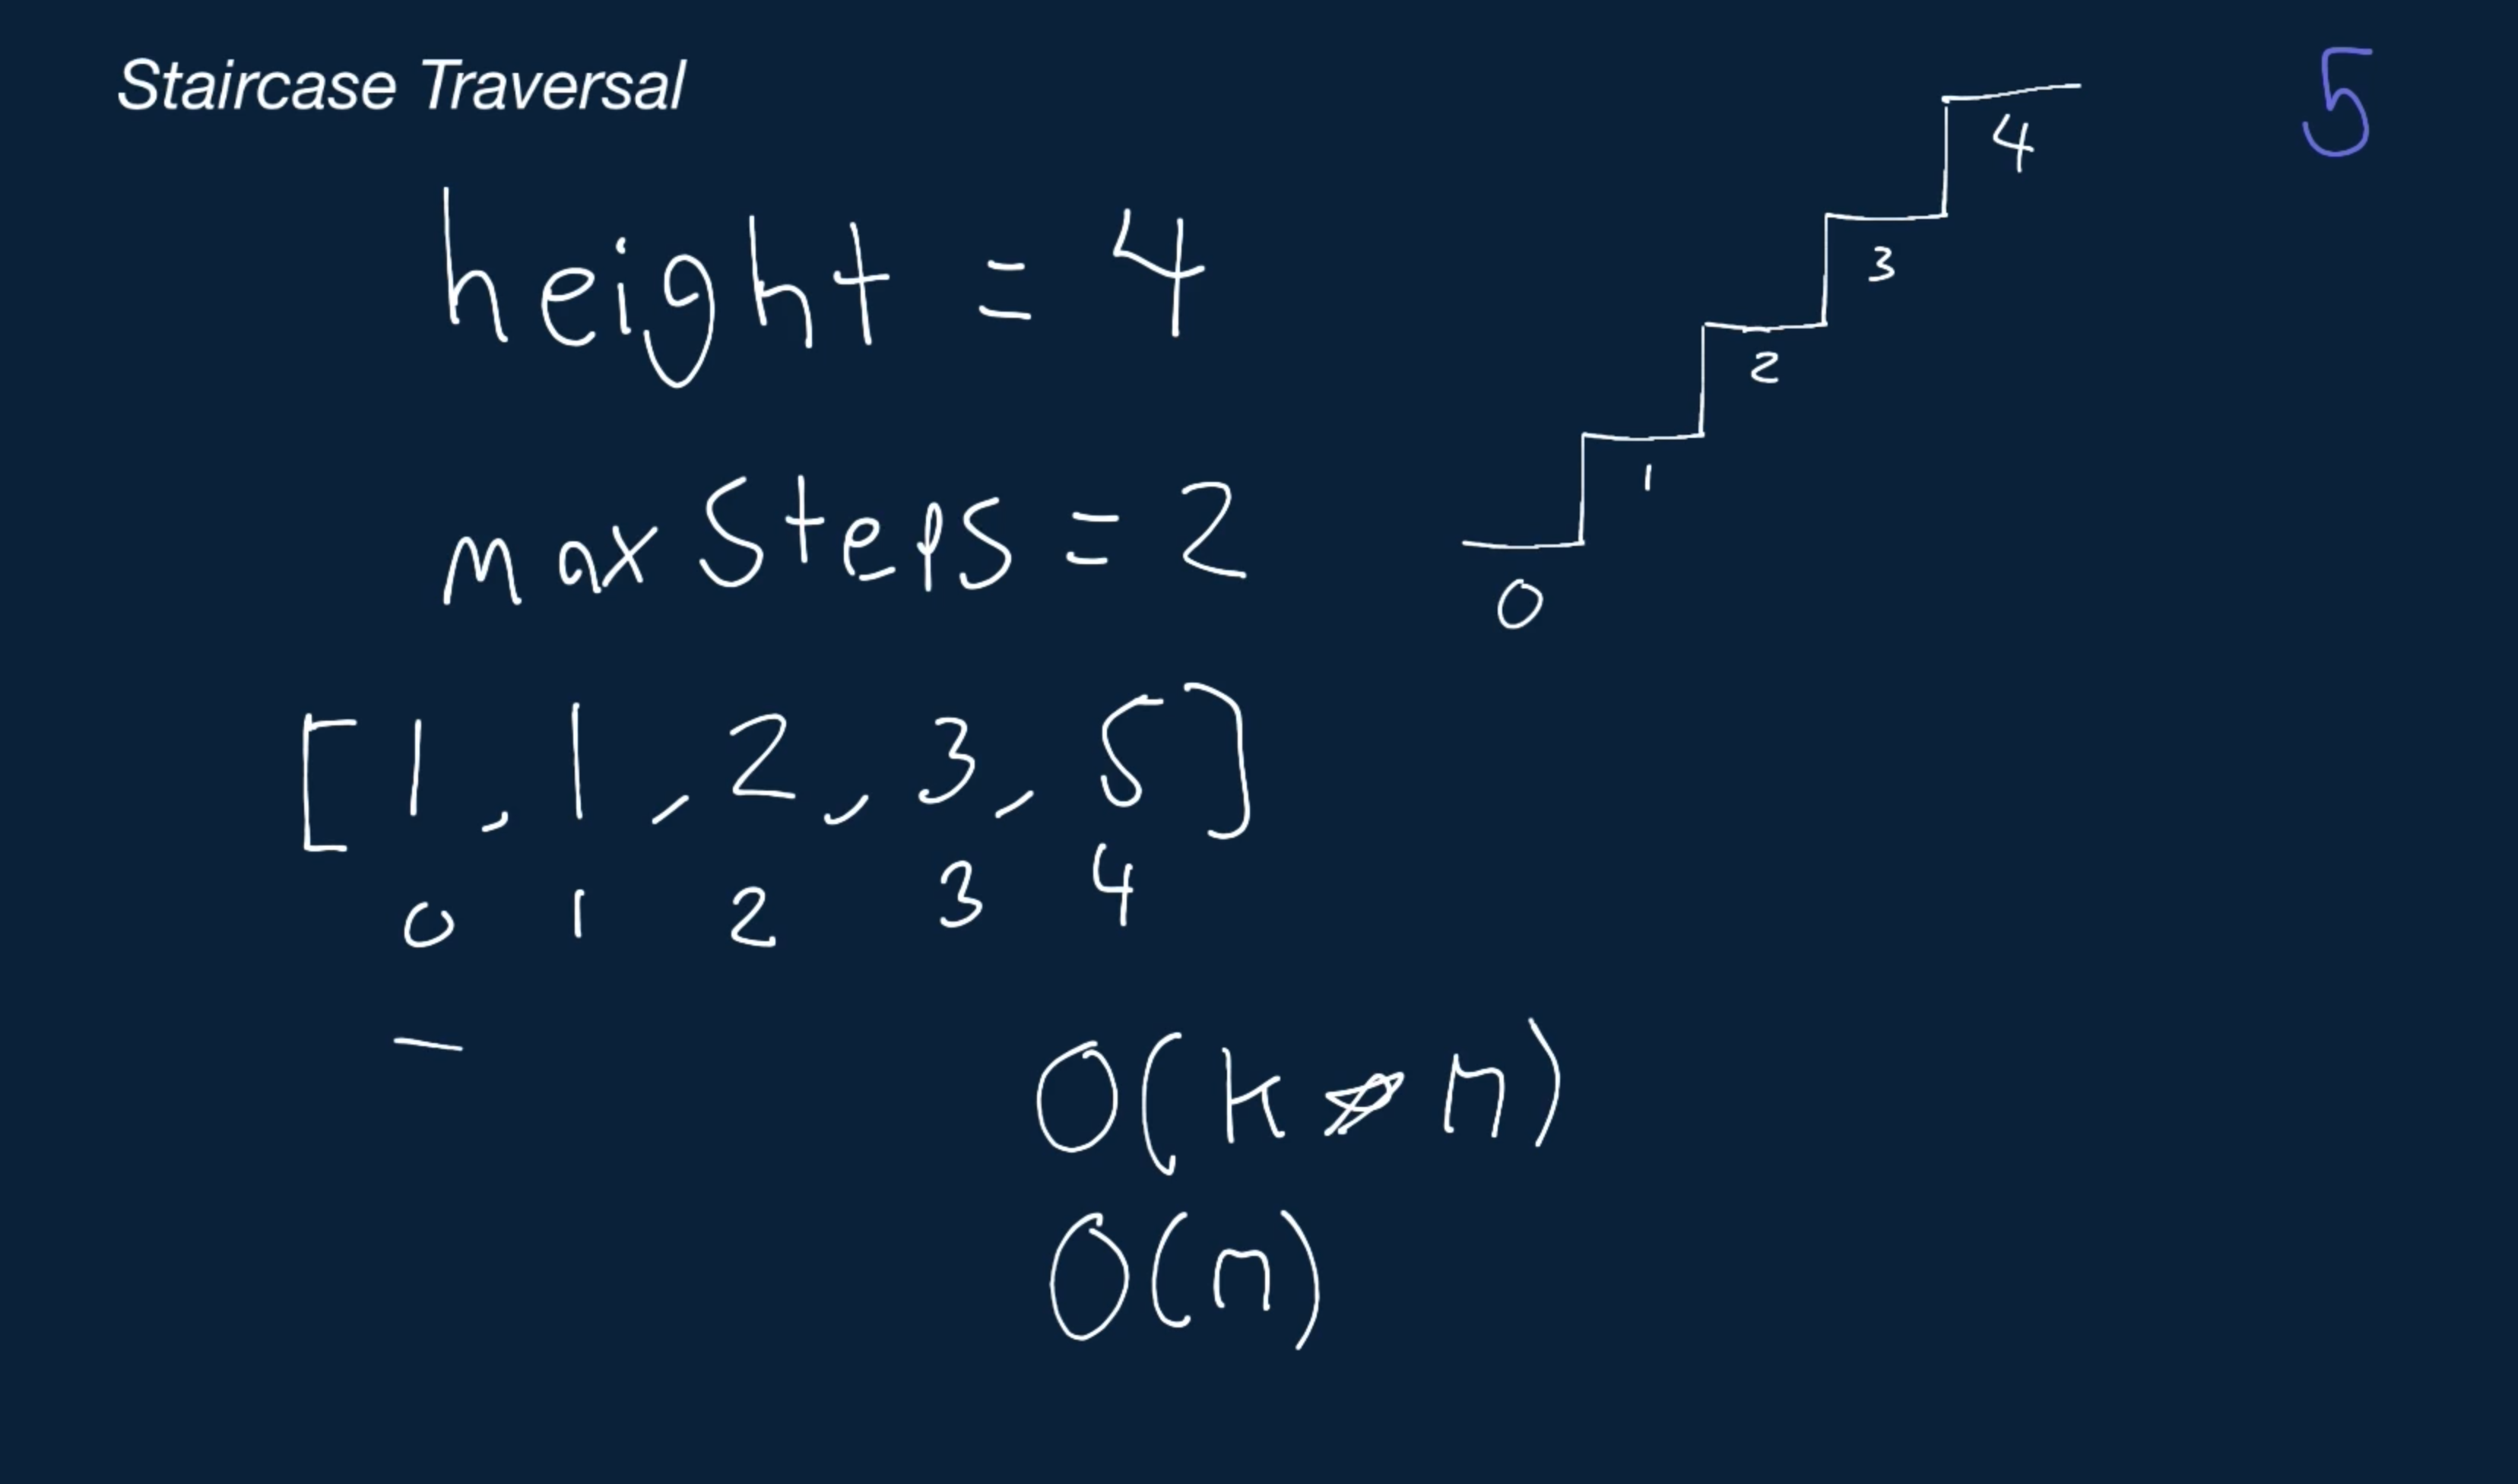 Staircase Traversal
5
height = 4
max Steps = 2
4
3
2
1
0
[1, 1, 2, 3, 5]
0 1 2 3 4
O(k * n)
O(n)